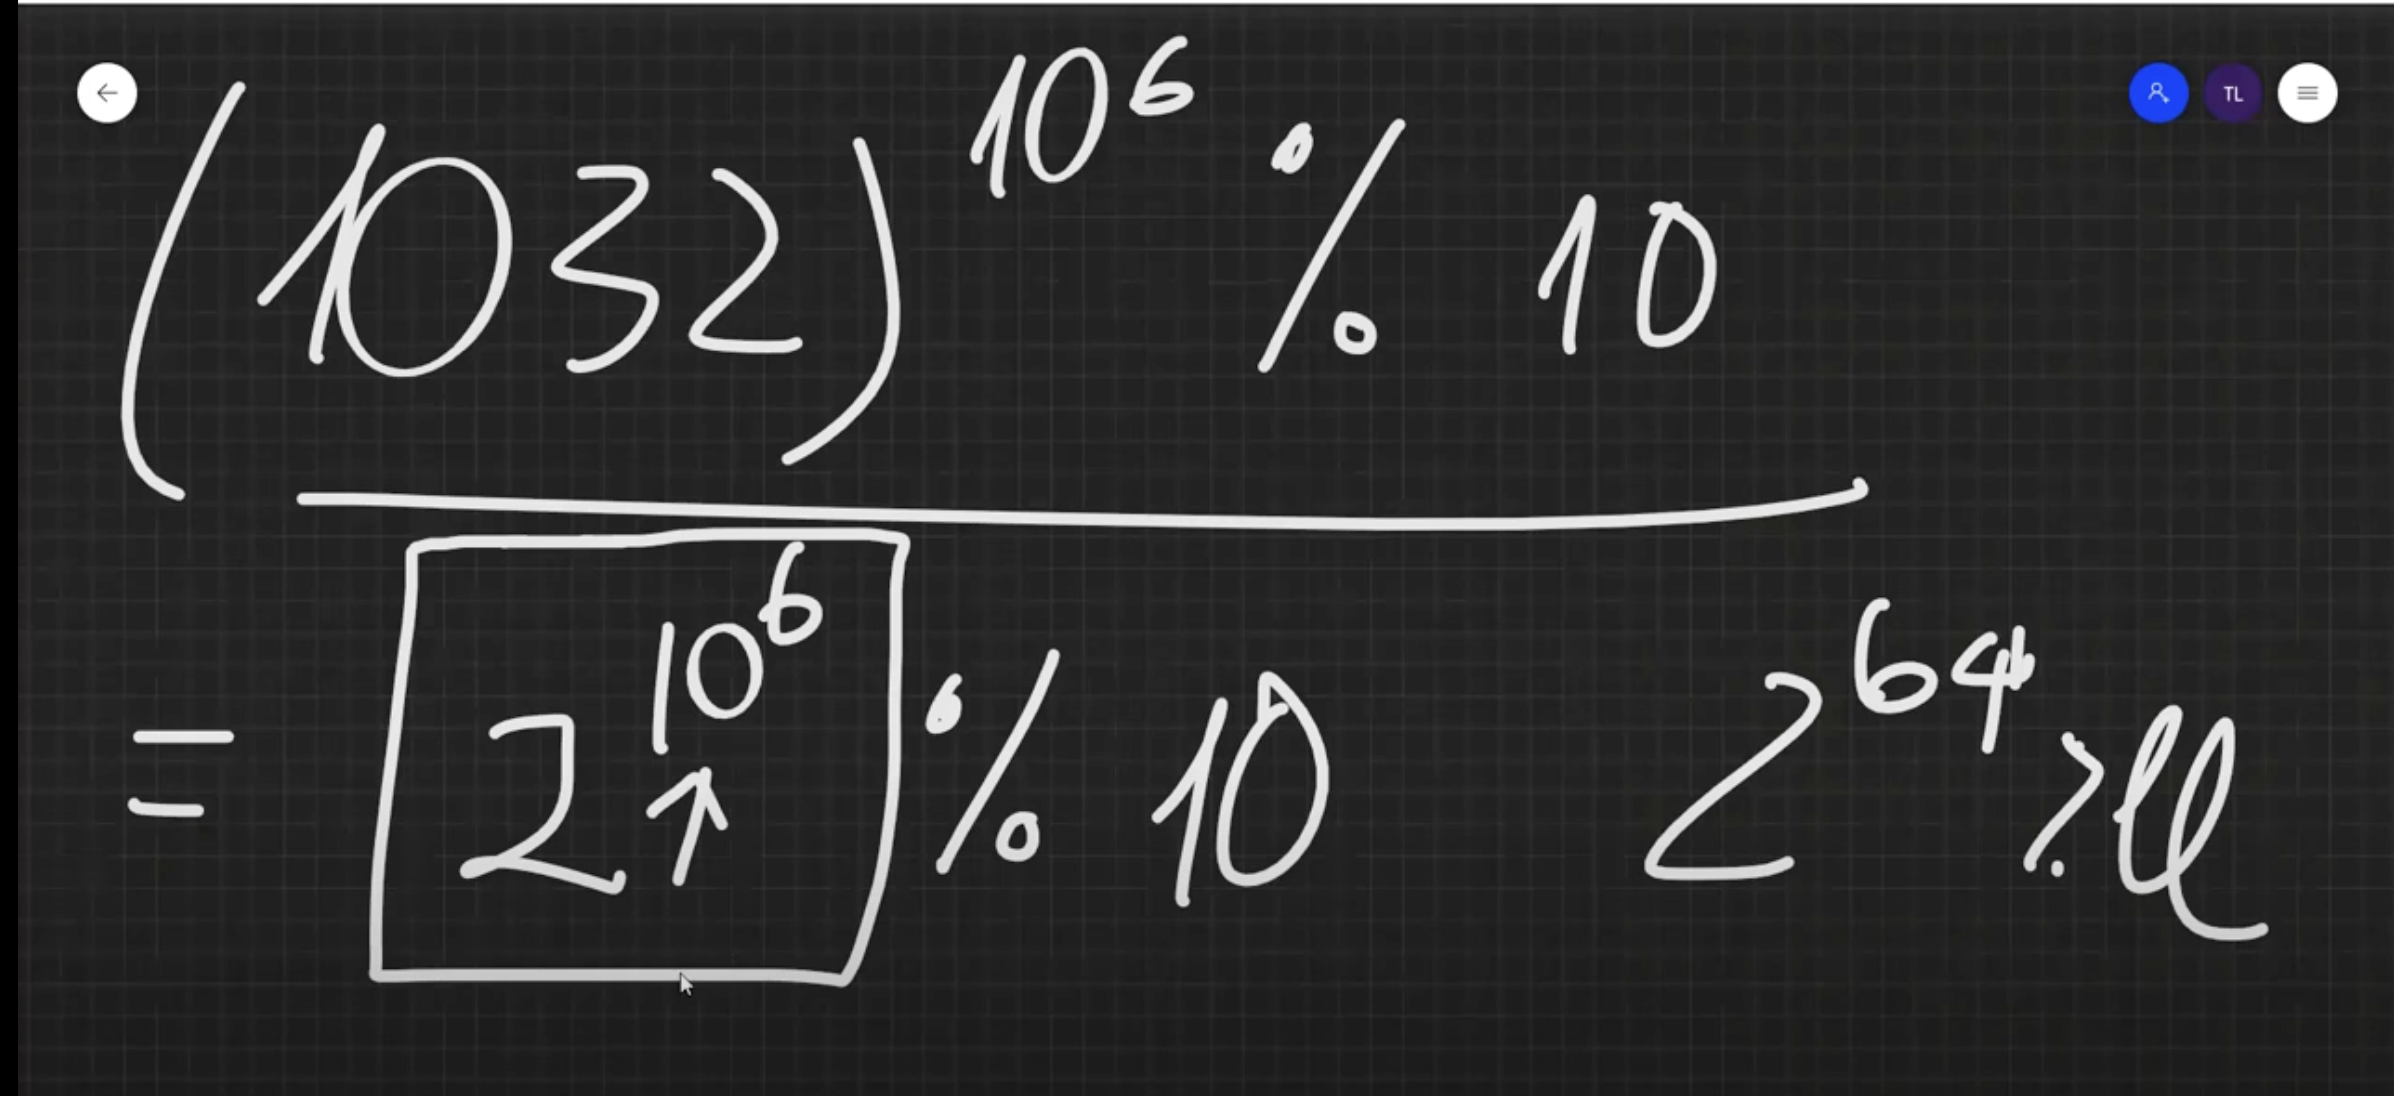 TL
(1032)^10^6 % 10
= 2^10^6 % 10
↑
2^64 > ll